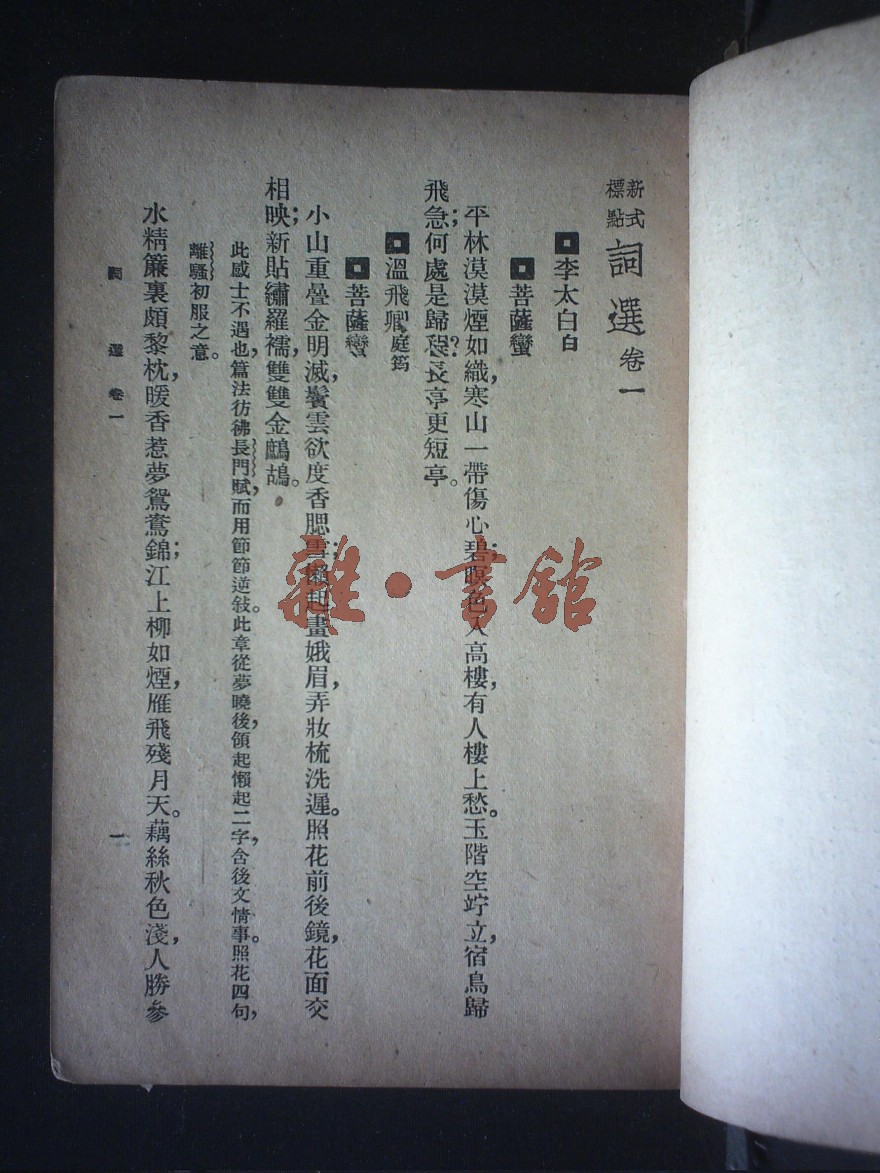 新式標點 詞選 卷一
李太白 白
菩薩蠻
平林漠漠煙如織寒山一帶傷心碧;暝色入高樓,有人樓上愁。玉階空竚立,宿鳥歸
飛急;何處是歸程?長亭更短亭。
溫飛卿 庭筠
菩薩蠻
小山重疊金明滅,鬢雲欲度香腮雪;懶起畫娥眉,弄妝梳洗遲。照花前後鏡,花面交
相映;新貼繡羅襦,雙雙金鷓鴣。
此感士不遇也,篇法彷彿長門賦,而用節節逆敍。此章從夢曉後,領起懶起二字,含後文情事。照花四句,
離騷初服之意。
水精簾裏頗黎枕,暖香惹夢鴛鴦錦;江上柳如煙,雁飛殘月天。藕絲秋色淺,人勝參
詞選 卷一
一
雜·書館